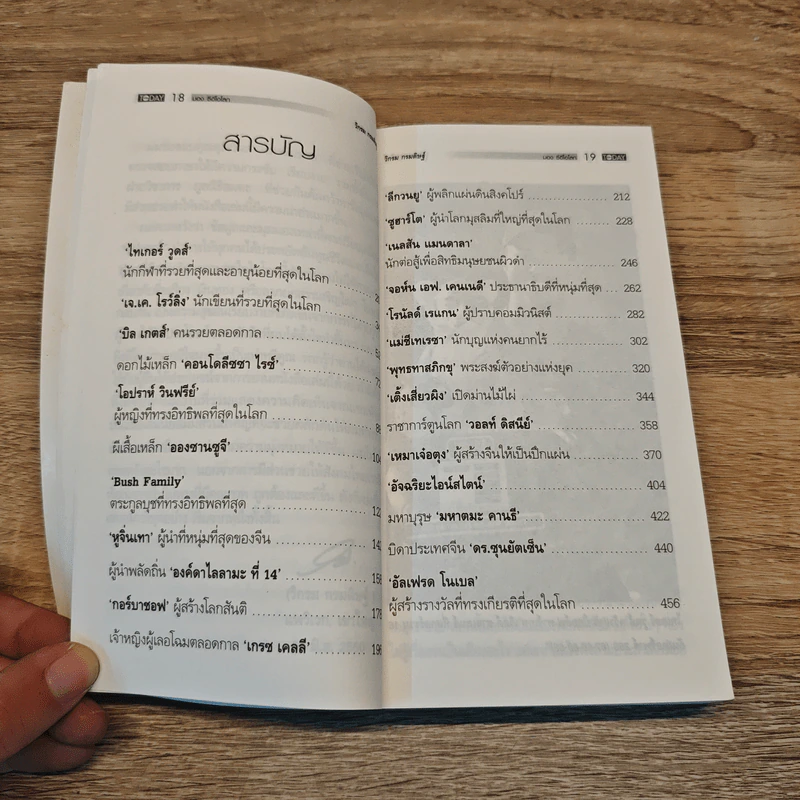 TODAY 18 มอง ซีอีโอโลก
วิกรม
สารบัญ
'ไทเกอร์ วูดส์'
นักกีฬาที่รวยที่สุดและอายุน้อยที่สุดในโลก
'เจ.เค. โรว์ลิ่ง' นักเขียนที่รวยที่สุดในโลก
'บิล เกตส์' คนรวยตลอดกาล
ดอกไม้เหล็ก 'คอนโดลีซซา ไรซ์'
'โอปราห์ วินฟรีย์'
ผู้หญิงที่ทรงอิทธิพลที่สุดในโลก
ผีเสื้อเหล็ก 'อองซานซูจี' 10
'Bush Family'
ตระกูลบุชที่ทรงอิทธิพลที่สุด 12
'หูจิ่นเทา' ผู้นำที่หนุ่มที่สุดของจีน 14
ผู้นำพลัดถิ่น 'องค์ดาไลลามะ ที่ 14' 15
'กอร์บาชอฟ' ผู้สร้างโลกสันติ 17
เจ้าหญิงผู้เลอโฉมตลอดกาล 'เกรซ เคลลี่' 19
วิกรม กรมดิษฐ์ มอง ซีอีโอโลก 19 TODAY
'ลีกวนยู' ผู้พลิกแผ่นดินสิงคโปร์ 212
'ซูฮาร์โต' ผู้นำโลกมุสลิมที่ใหญ่ที่สุดในโลก 228
'เนลสัน แมนดาลา'
นักต่อสู้เพื่อสิทธิมนุษยชนผิวดำ 246
'จอห์น เอฟ. เคนเนดี' ประธานาธิบดีที่หนุ่มที่สุด 262
'โรนัลด์ เรแกน' ผู้ปราบคอมมิวนิสต์ 282
'แม่ชีเทเรซา' นักบุญแห่งคนยากไร้ 302
'พุทธทาสภิกขุ' พระสงฆ์ตัวอย่างแห่งยุค 320
'เติ้งเสี่ยวผิง' เปิดม่านไม้ไผ่ 344
ราชาการ์ตูนโลก 'วอลท์ ดิสนีย์' 358
'เหมาเจ๋อตุง' ผู้สร้างจีนให้เป็นปึกแผ่น 370
'อัจฉริยะไอน์สไตน์' 404
มหาบุรุษ 'มหาตมะ คานธี' 422
บิดาประเทศจีน 'ดร.ซุนยัตเซ็น' 440
'อัลเฟรด โนเบล'
ผู้สร้างรางวัลที่ทรงเกียรติที่สุดในโลก 456